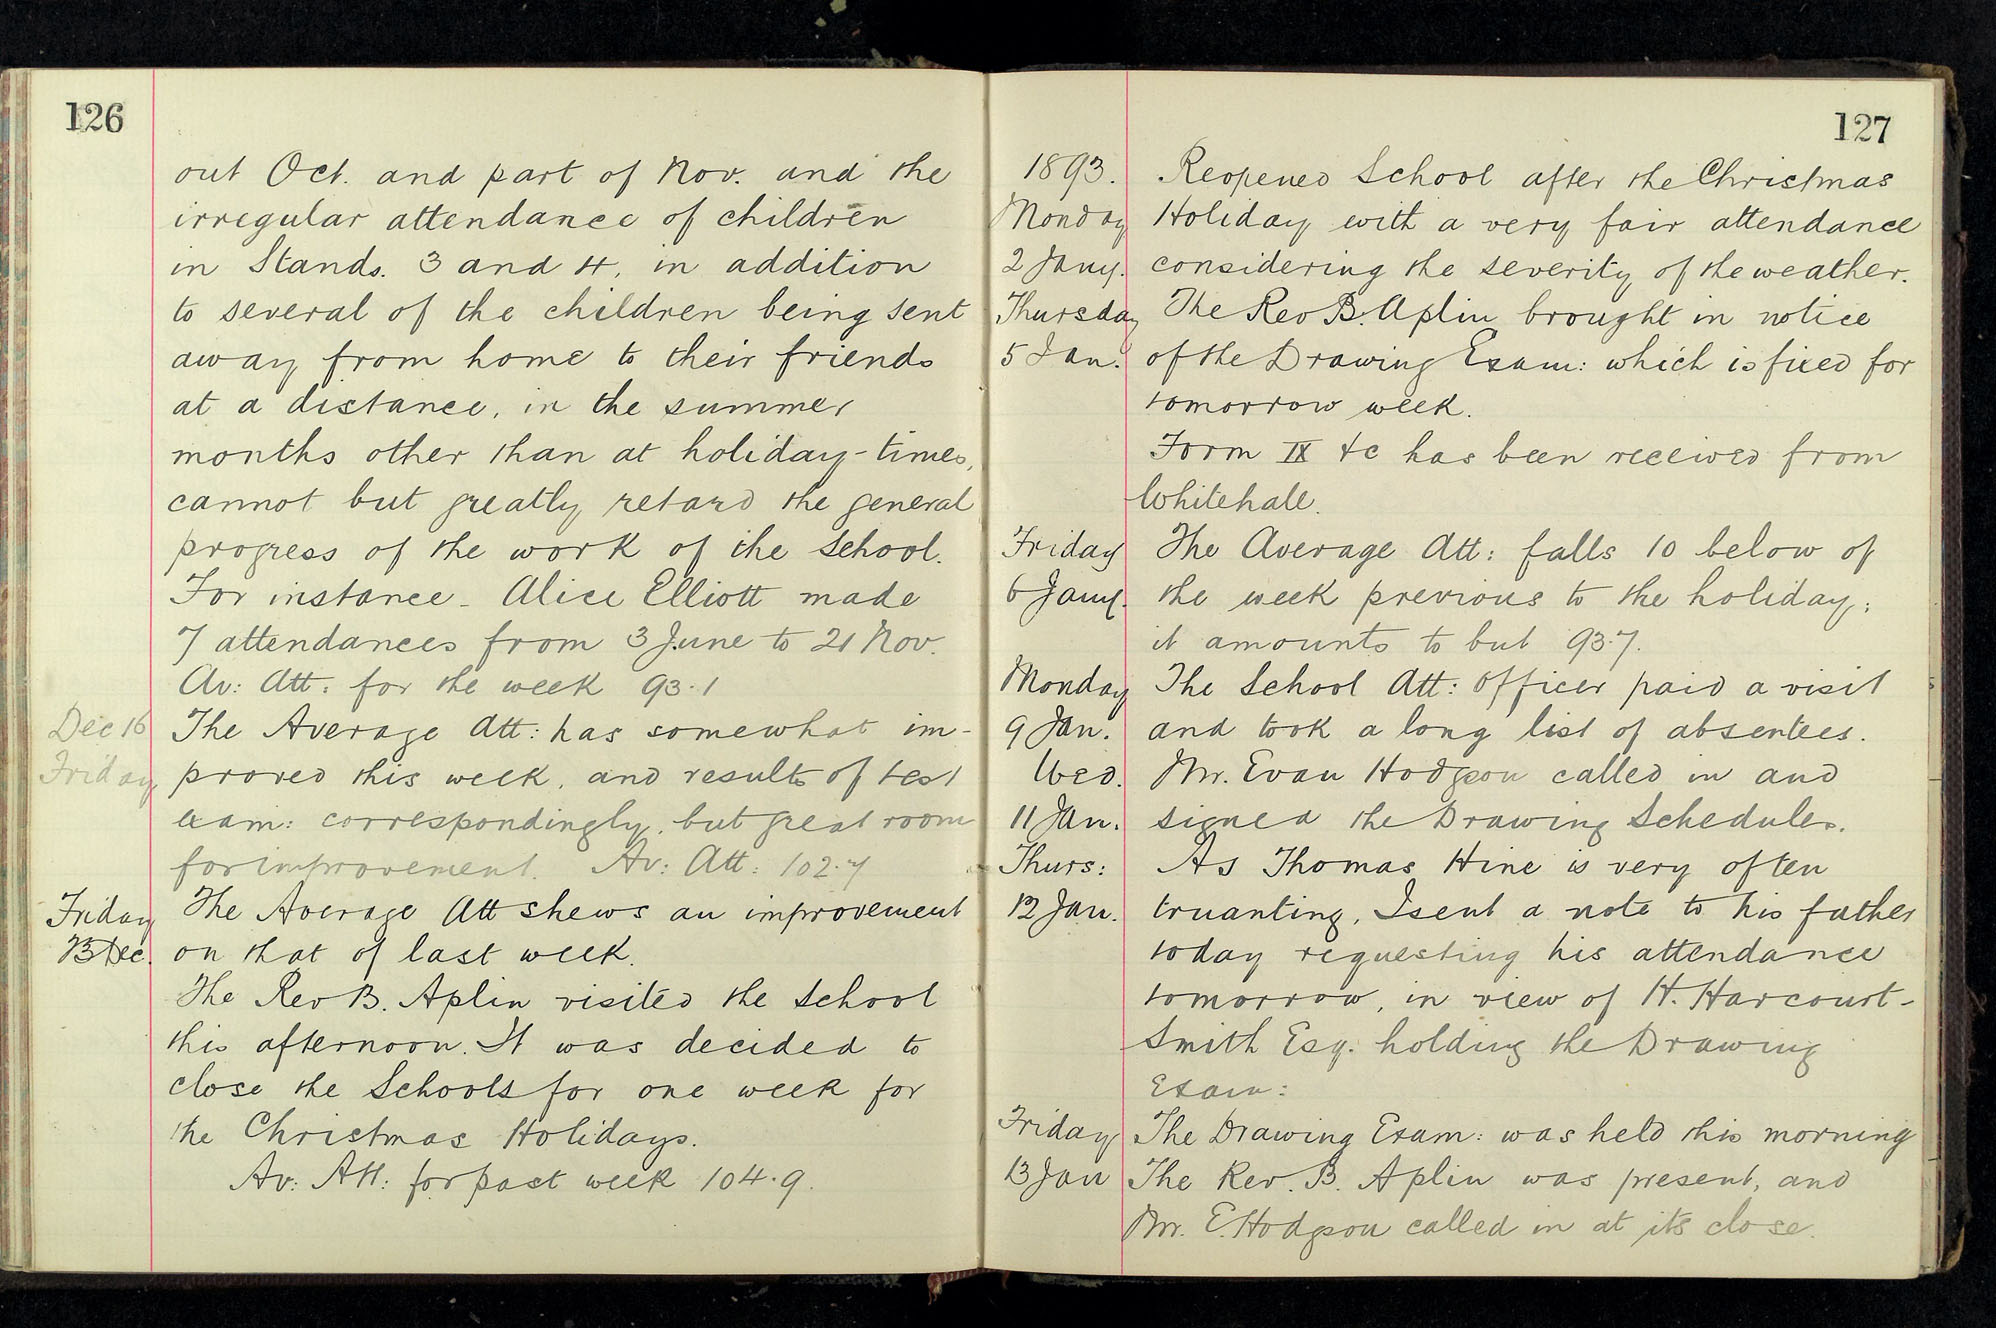 126
out Oct. and part of Nov. and the
irregular attendance of children
in Stands. 3 and 4, in addition
to several of the children being sent
away from home to their friends
at a distance, in the summer
months other than at holiday-times,
cannot but greatly retard the general
progress of the work of the School.
For instance - Alice Elliott made
7 attendances from 3 June to 21 Nov.
Av: Att: for the week 93.1
Dec 16 The Average Att: has somewhat im-
Friday proved this week, and results of test
exam: correspondingly, but great room
for improvement. Av: Att: 102.7
Friday The Average Att shews an improvement
23 Dec. on that of last week.
The Rev B. Aplin visited the School
this afternoon. It was decided to
close the Schools for one week for
the Christmas Holidays.
Av: Att: for past week 104.9.
127
1893. Reopened School after the Christmas
Monday Holiday with a very fair attendance
2 Jany. considering the severity of the weather.
Thursday The Rev B. Aplin brought in notice
5 Jan. of the Drawing Exam: which is fixed for
tomorrow week.
Form IX &c has been received from
Whitehall.
Friday The Average Att: falls 10 below of
6 Jany. the week previous to the holiday;
it amounts to but 93.7.
Monday The School Att: Officer paid a visit
9 Jan. and took a long list of absentees.
Wed. Mr. Evan Hodgson called in and
11 Jan. signed the Drawing Schedules.
Thurs: As Thomas Hine is very often
12 Jan. truanting, I sent a note to his father
today requesting his attendance
tomorrow, in view of H. Harcourt-
Smith Esq. holding the Drawing
Exam:
Friday The Drawing Exam: was held this morning
13 Jan The Rev. B. Aplin was present, and
Mr. E. Hodgson called in at its close.